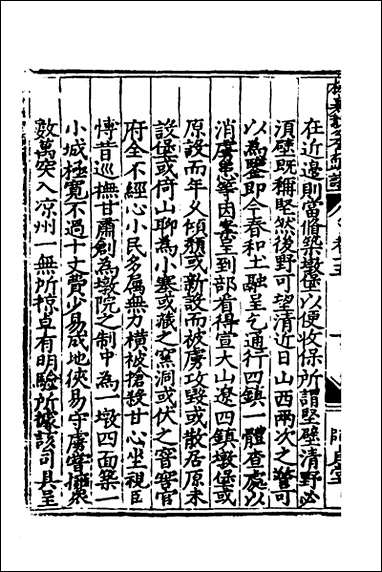 在近邊則當脩築墩堡以便收保所謂堅壁清野必
須壁既稱堅然後野可望清近日山西兩次之警可
以為鑒即今春和土融呈乞通行四鎮一體查處以
消虜患等因案呈到部看得宣大山遼四鎮墩堡或
原設而年久傾頹或新設而被虜攻毀或散居原未
設堡或倚山聊為小寨或藏之窯洞或伏之窨窖官
府全不經心小民多屬無力橫被搶殺甘心坐視臣
慱昔巡撫甘肅創為墩院之制中為一墩四面築一
小城極寬不過十丈費少易成地狹易守虜嘗擁衆
數萬突入凉州一無所掠卓有明驗所據該司具呈